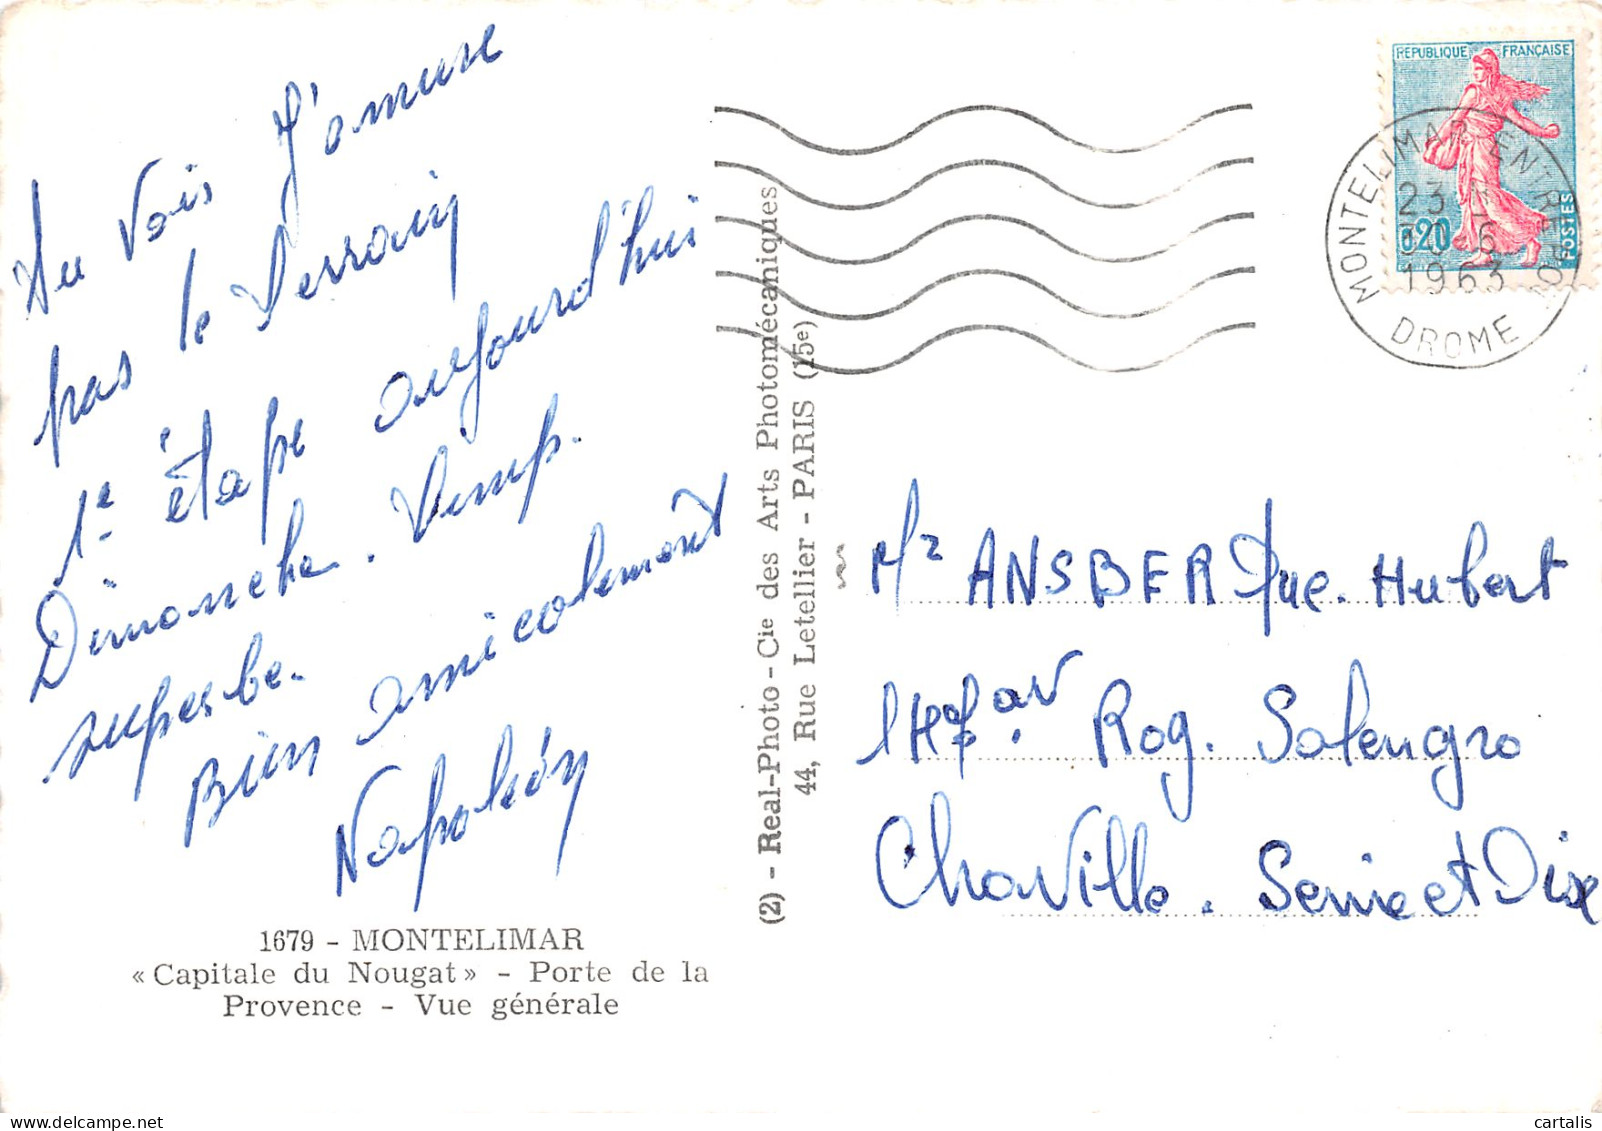 Tu vois J'amuse
pas le Terrain
1e étape aujourd'hui
Dimanche. Temp.
superbe.
Bien amicalement
Napoléon
1679 - MONTELIMAR
« Capitale du Nougat » - Porte de la
Provence - Vue générale
(2) - Real-Photo - Cie des Arts Photomécaniques
44, Rue Letellier - PARIS (15e)
REPUBLIQUE FRANÇAISE
0,20
POSTES
MONTELIMAR ENTREPOT
23 H
30-6
1963
DROME
Mr ANSBER Hubert
av Rog. Salengro
Chaville. Seine et Oise
cartalis
www.delcampe.net